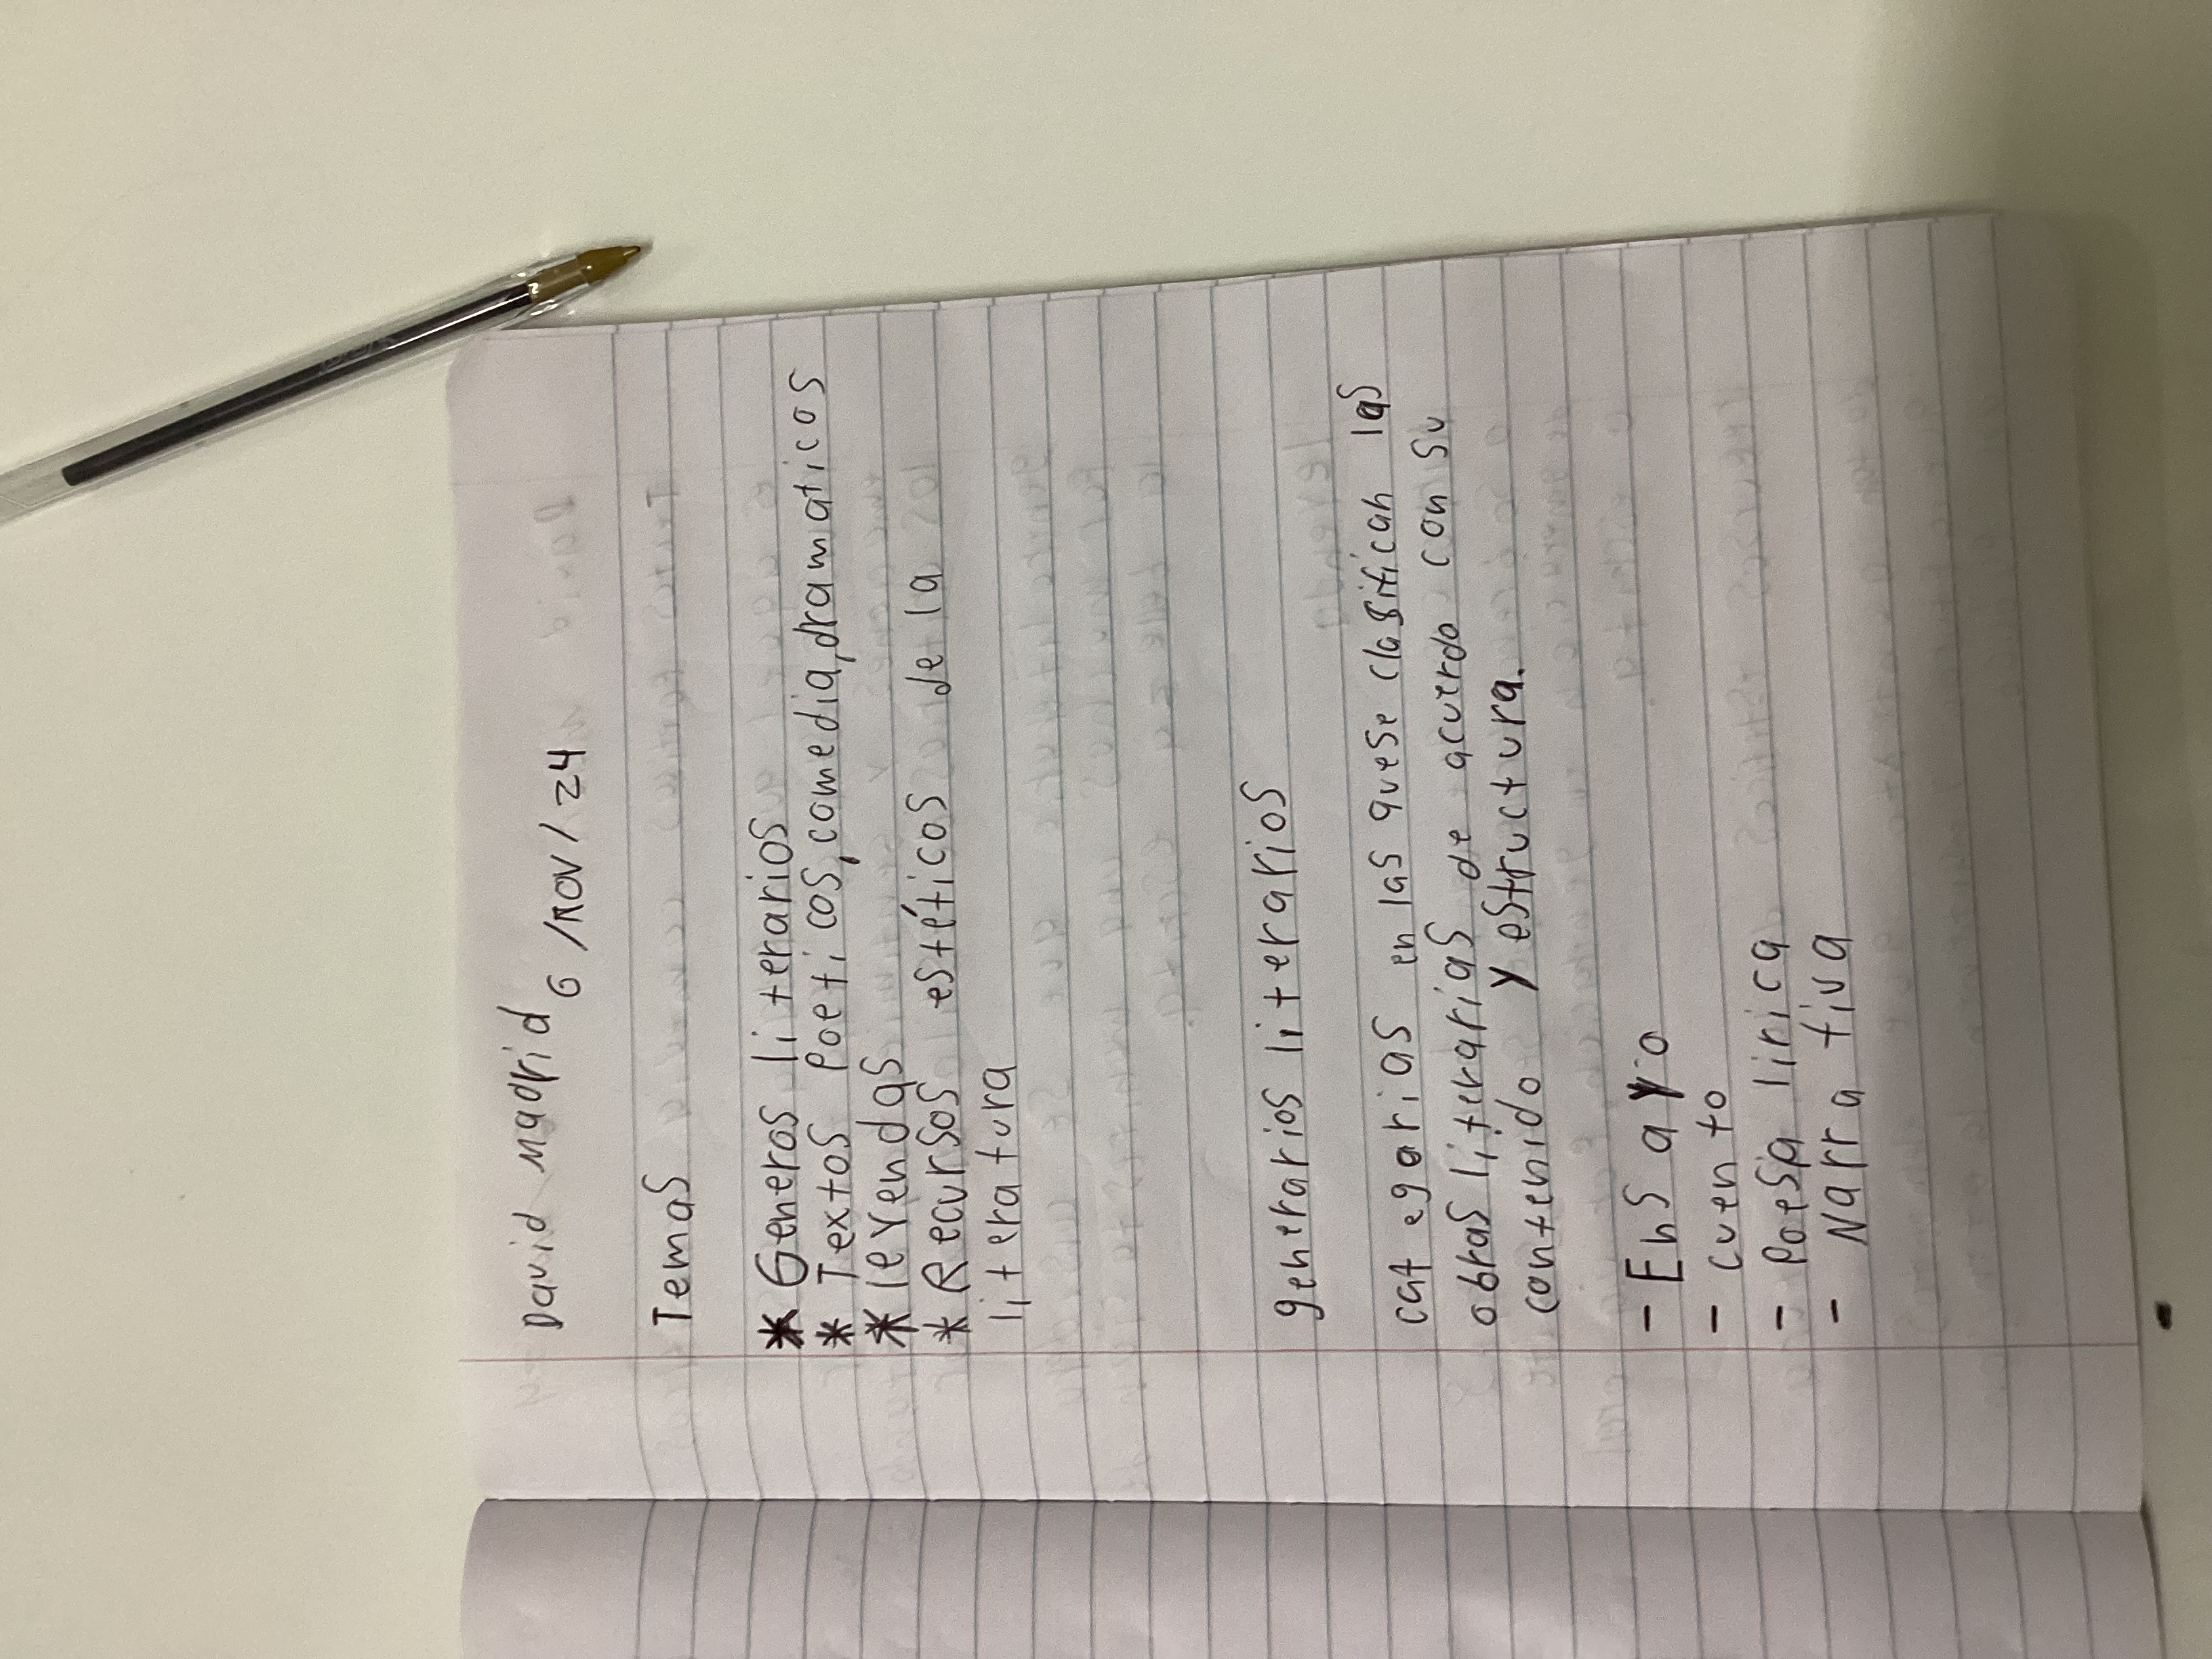 David Madrid
6/nov/24
Temas
* Generos literarios
* Textos Poeticos, comedia, dramaticos
* leyendas
* Recursos estéticos de la
literatura
generarios literarios
categorias en las que se clasifican las
obras literarias de acuerdo con su
contenido y estructura.
- Ensayo
- cuento
- Poesia lirica
- Narrativa